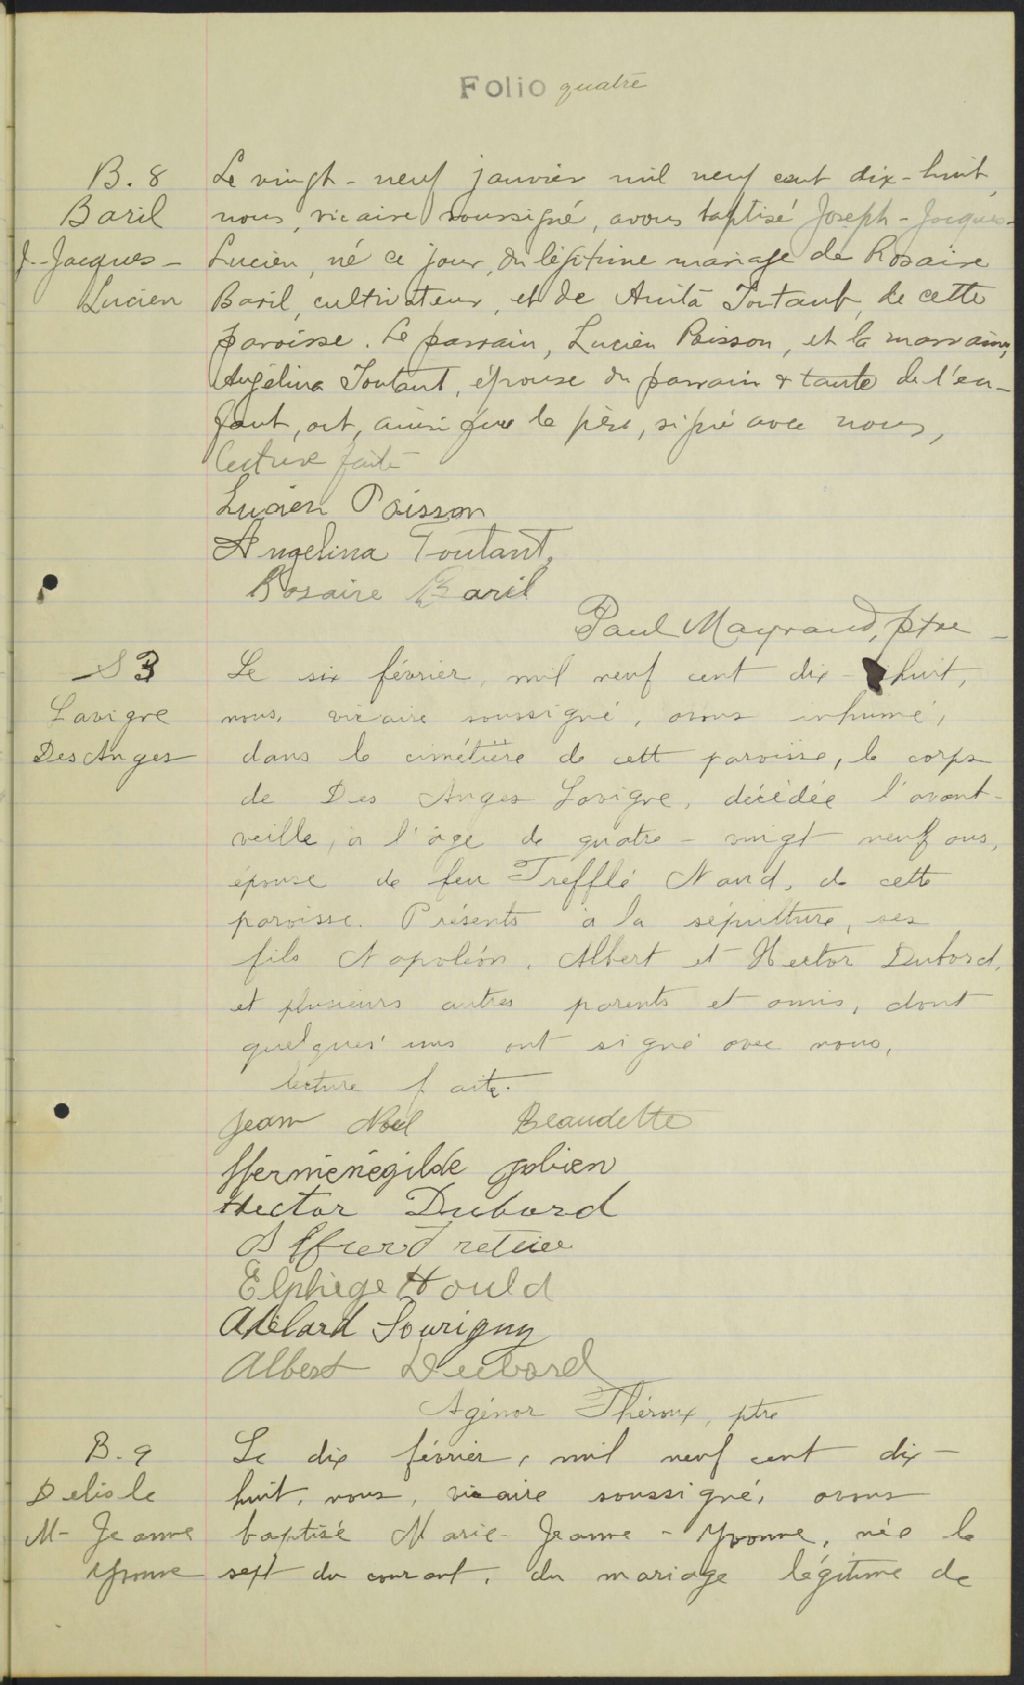 Folio quatre
B. 8
Baril
J.-Jacques-
Lucien
Le vingt-neuf janvier mil neuf cent dix-huit,
nous, vicaire soussigné, avons baptisé Joseph-Jacques-
Lucien, né ce jour, du légitime mariage de Rosaire
Baril, cultivateur, et de Anita Toutant, de cette
paroisse. Le parrain, Lucien Poisson, et la marraine,
Angélina Toutant, épouse du parrain & tante de l'en-
fant, ont, ainsi que le père, signé avec nous,
lecture faite
Lucien Poisson
Angelina Toutant,
Rosaire Baril
Paul Mayrand, ptre
S 3
Lavigne
Des Anges
Le six février, mil neuf cent dix-huit,
nous, vicaire soussigné, avons inhumé,
dans le cimétière de cett paroisse, le corps
de Des Anges Lavigne, décédée l'avant-
veille, à l'âge de quatre-vingt neuf ans,
épouse de feu Trefflé Naud, de cette
paroisse. Présents à la sépulture, ses
fils Napoléon, Albert et Hector Dubord,
et plusieurs autres parents et amis, dont
quelques'uns ont signé avec nous,
lecture faite.
Jean Noël Beaudette
Herménégilde
Hector Dubord
Elphège Hould
Adélard Sourigny
Albert Dubord
Agénor Théroux, ptre
B. 9
Delisle
M- Jeanne
Yvonne
Le dix février, mil neuf cent dix-
huit, nous, vicaire soussigné, avons
baptisé Marie-Jeanne-Yvonne, née le
sept du courant, du mariage légitime de